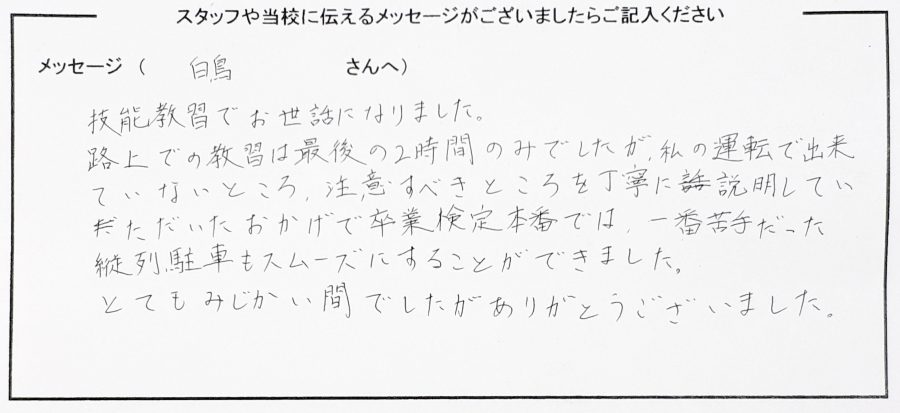 スタッフや当校に伝えるメッセージがございましたらご記入ください
メッセージ （ 白鳥 さんへ）
技能教習でお世話になりました。
路上での教習は最後の2時間のみでしたが、私の運転で出来
ていないところ、注意すべきところを丁寧に説明してい
ただいたおかげで卒業検定本番では、一番苦手だった
縦列駐車もスムーズにすることができました。
とてもみじかい間でしたがありがとうございました。